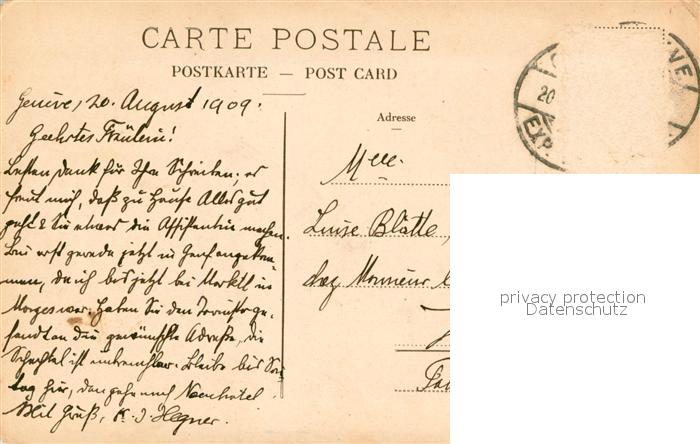 CARTE POSTALE
POSTKARTE — POST CARD
Genève, 20. August 1909.
Geehrtes Fräulein!
Besten Dank für Ihr Schreiben; es
freut mich, daß zu Hause Alles gut
geht & Sie etwas die Assistentin machen.
Bin erst gerade jetzt in Genf angekom-
men, da ich bis jetzt bei in
Morges war. Haben Sie den ge-
sandt an die gewünschte Adresse, die
Schachtel ist Bleibe bis
tag hier, dann gehe nach
Mit Gruß, K. J. Hegner.
Adresse
Mlle.
Luise Blattle,
chez Monsieur
20
EXP.
privacy protection
Datenschutz